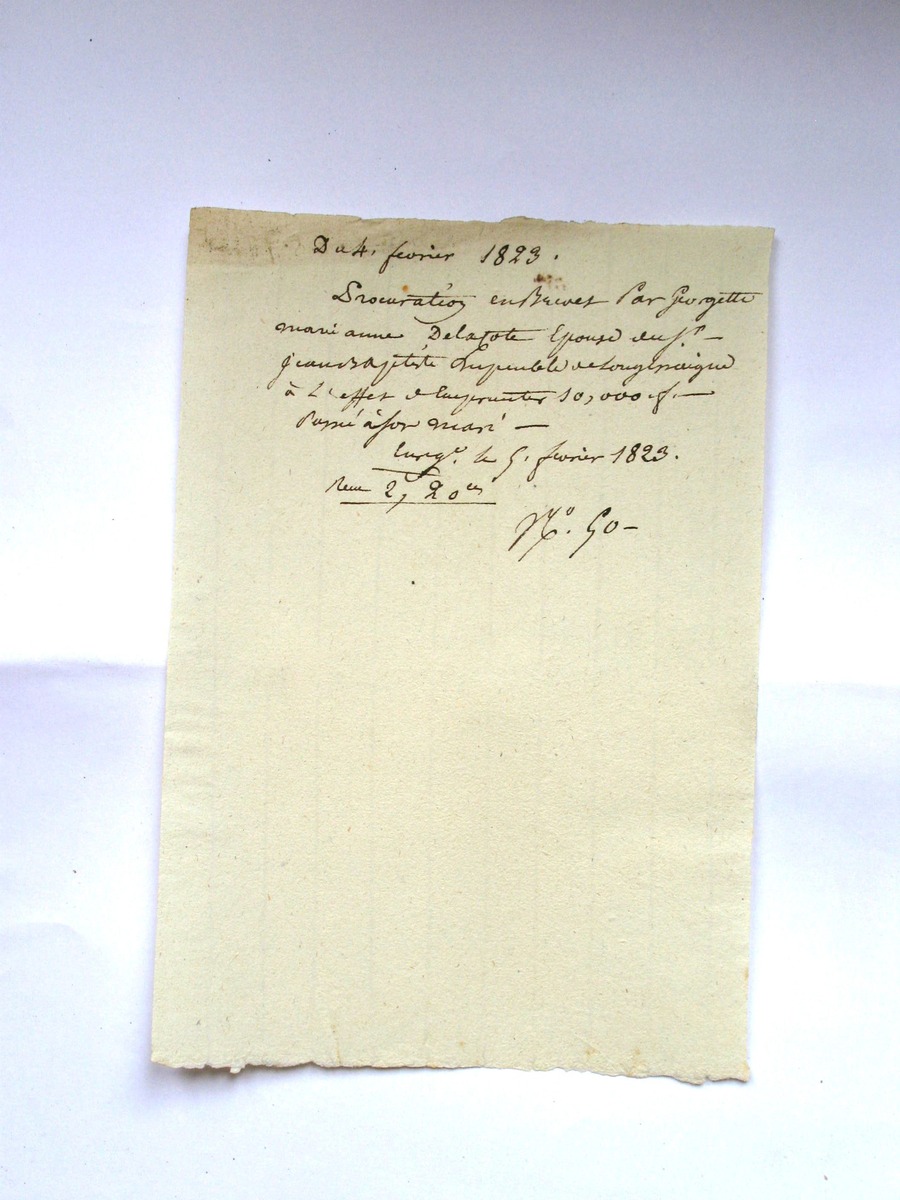 Du 4. fevrier 1823.
Procuration en Brevet Par Georgette
marianne Delajote Epouse du Sr. —
jean Baptiste de
à L'effet d'emprunter 10,000 f. —
Passé à son mari —
Enregt. le 5. fevrier 1823.
Reçu 2, 20 ces
No. 50 —